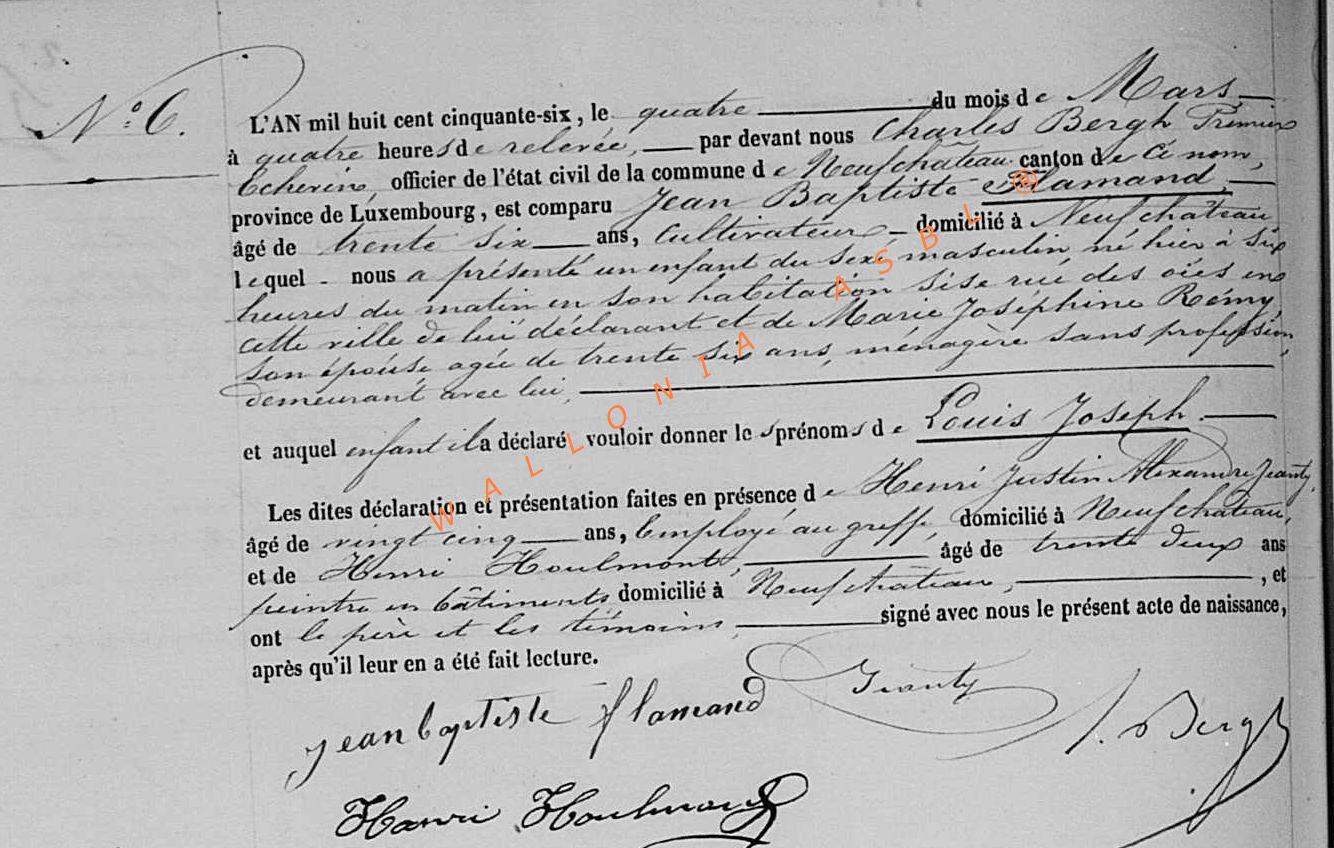 N° 6.
L'AN mil huit cent cinquante-six, le quatre du mois de Mars
à quatre heures de relevée, par devant nous Charles Bergh Premier
Echevin, officier de l'état civil de la commune de Neufchâteau canton de ce nom,
province de Luxembourg, est comparu Jean Baptiste Flamand,
âgé de trente six ans, Cultivateur domicilié à Neufchâteau
lequel nous a présenté un enfant du sexe masculin né hier à six
heures du matin en son habitation sise rue des oies en
cette ville de lui déclarant et de Marie Joséphine Rémy
son épouse agée de trente six ans, ménagère sans profession,
demeurant avec lui,
et auquel enfant il a déclaré vouloir donner les prénoms de Louis Joseph.
Les dites déclaration et présentation faites en présence de Henri Justin Alexandre Jeanty,
âgé de vingt cinq ans, Employé au greffe, domicilié à Neufchâteau,
et de Henri Houlmont, âgé de trente deux ans
peintre en bâtiments domicilié à Neufchâteau, , et
ont le père et les témoins, signé avec nous le présent acte de naissance,
après qu'il leur en a été fait lecture.
jean baptiste flamand Jeanty Bergh
Henri Houlmont
WALLONIA ASBL ®